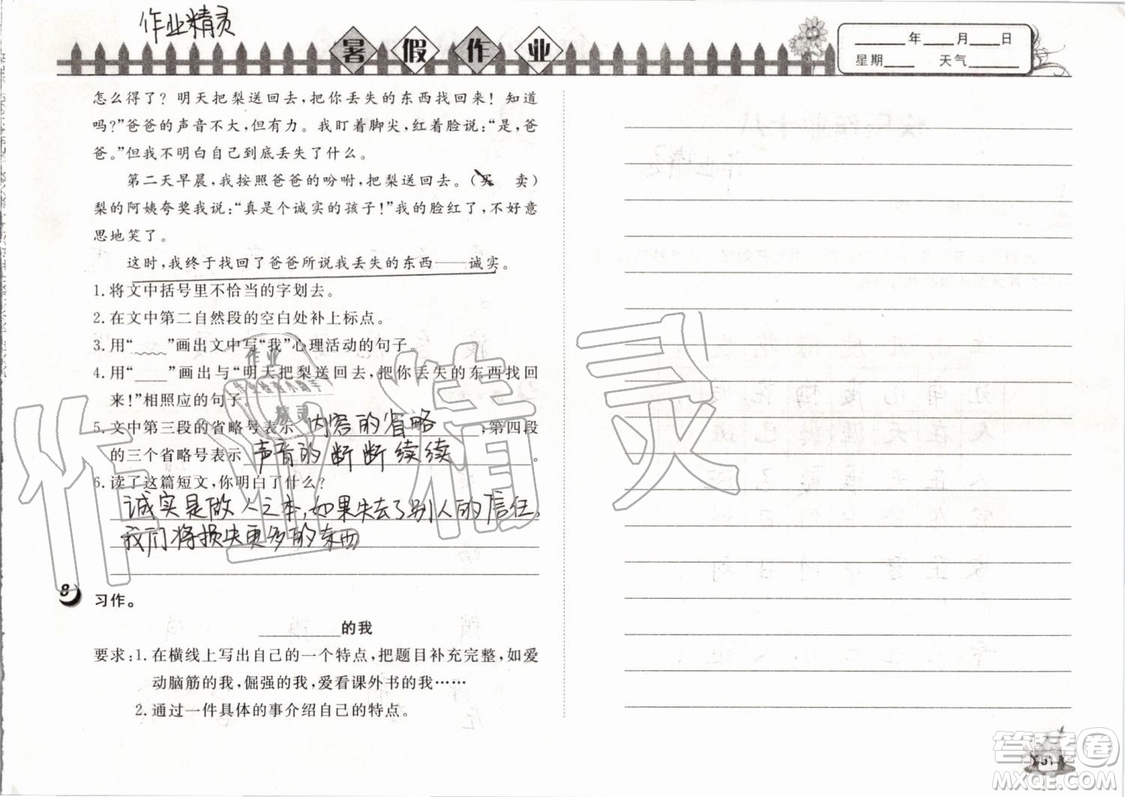 作业精灵
暑假作业
年 月 日
星期 天气
怎么得了？明天把梨送回去，把你丢失的东西找回来！知道
吗？”爸爸的声音不大，但有力。我盯着脚尖，红着脸说：“是，爸
爸。”但我不明白自己到底丢失了什么。
第二天早晨，我按照爸爸的吩咐，把梨送回去。（买 卖）
梨的阿姨夸奖我说：“真是个诚实的孩子！”我的脸红了，不好意
思地笑了。
这时，我终于找回了爸爸所说我丢失的东西——诚实。
1.将文中括号里不恰当的字划去。
2.在文中第二自然段的空白处补上标点。
3.用“﹏﹏”画出文中写“我”心理活动的句子。
4.用“____”画出与“明天把梨送回去，把你丢失的东西找回
来！”相照应的句子。
5.文中第三段的省略号表示 内容的省略 ，第四段
的三个省略号表示 声音的断断续续 。
6.读了这篇短文，你明白了什么？
诚实是做人之本，如果失去了别人的信任，
我们将损失更多的东西
8 习作。
________的我
要求：1.在横线上写出自己的一个特点，把题目补充完整，如爱
动脑筋的我，倔强的我，爱看课外书的我……
2.通过一件具体的事介绍自己的特点。
作业精灵
作业
精灵
答案圈
MXQE.COM
51